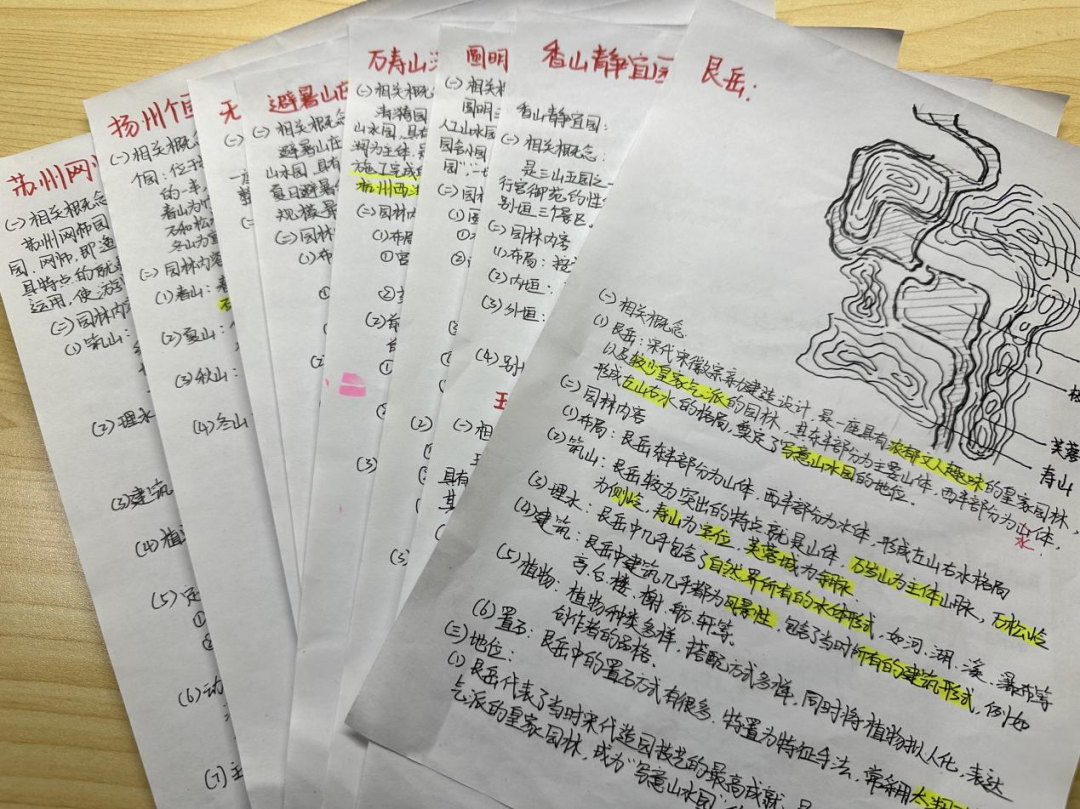 苏州网师
(一)相关概念
苏州网师园
园,网师,即渔
具特点的
运用,使游
(二)园林内容
(1)筑山:
(2)理水
(3)建筑
(4)植
(5)
①
②
(6)动
(7)
扬州个园
(一)相关概念
个园:位于
的一半,
春山为
石和松
冬山为
(二)园林内容
(1)春山:
(2)夏山:
(3)秋山:
(4)冬山
无
(一)
避暑山庄
(一)相关概念
避暑山庄
山水园,具有
夏日避暑
规模最
(二)园林
(1)布
①
万寿山
(一)相关概念
清漪园
山水园,具有
湖为主体,是
施工完成的
杭州西湖
(二)园林内
(1)布局
①宫
②
(2)前
①
(3)
圆明
(一)相关概
圆明
人工山水园
园含小园
园"
(二)园林
(1)
①
②
香山静宜园
香山静宜园:
(一)相关概念:
是三山五园之一
行宫御苑的性
别垣三个景区。
(二)园林内容
(1)布局:
(2)内垣:
(3)外垣:
(4)别
(一)相
具有
艮岳:
芙蓉
寿山
(一)相关概念
(1)艮岳:宋代宋徽宗亲自建造设计,是一座具有浓郁文人趣味的皇家园林,
以及较少皇家气派的园林,其东半部分为主要山体,西半部分为水体,
形成左山右水的格局,奠定了写意山水园的地位。
(二)园林内容
(1)布局:艮岳东半部分为山体,西半部分为水体,形成左山右水格局
(2)筑山:艮岳较为突出的特点就是山体,万岁山为主体山脉,万松岭
为侧岭,寿山为宾位,芙蓉城为余脉
(3)理水:艮岳中几乎包含了自然界所有的水体形式,如河、湖、溪、瀑布等
(4)建筑:艮岳中建筑几乎都为风景性,包含了当时所有的建筑形式,例如
亭、台、楼、榭、舫、轩等。
(5)植物:植物种类多样,搭配方式多样,同时将植物拟人化,表达
创作者的品格。
(6)置石:艮岳中的置石方式有很多,特置为特征手法,常利用太湖
(三)地位:
(1)艮岳代表了当时宋代造园技艺的最高成就,是
气派的皇家园林,成为"写意山水园"